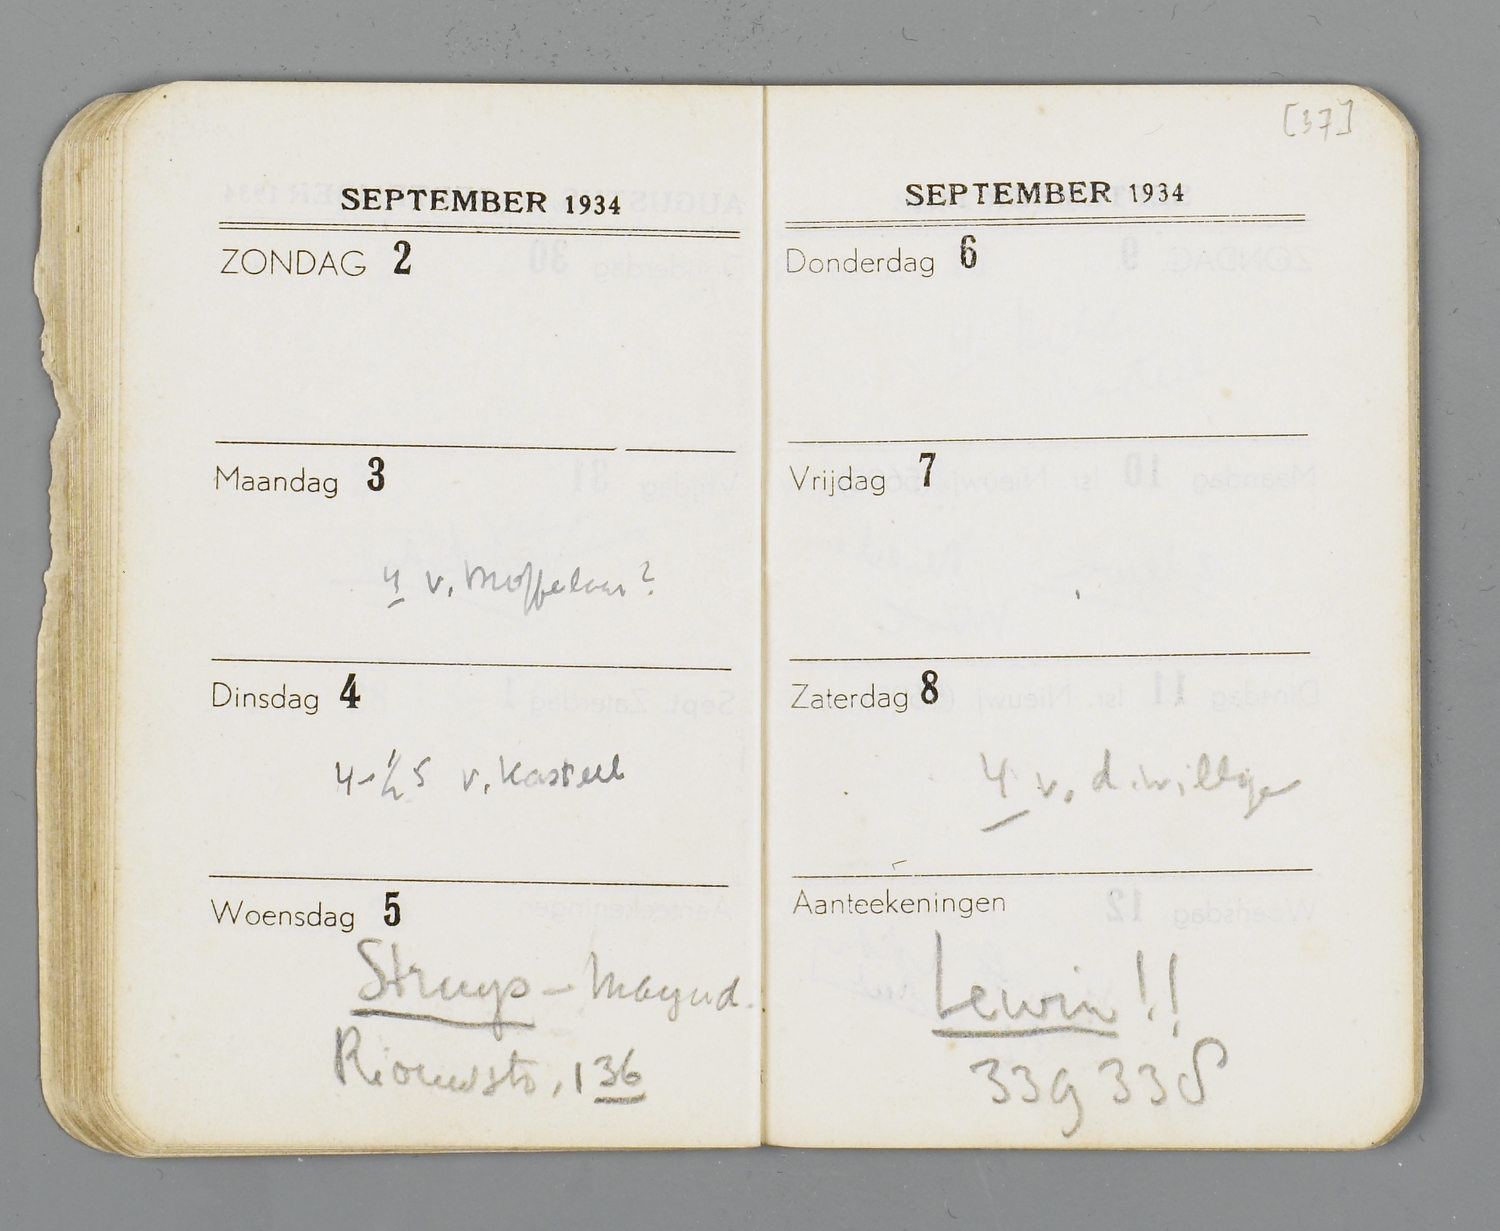 [37]
SEPTEMBER 1934
ZONDAG 2
Maandag 3
4 v. Moffelaar?
Dinsdag 4
4-½5 v. Kasteel
Woensdag 5
Struys -
136
SEPTEMBER 1934
Donderdag 6
Vrijdag 7
Zaterdag 8
4 v. d. Willige
Aanteekeningen
Lewin!!